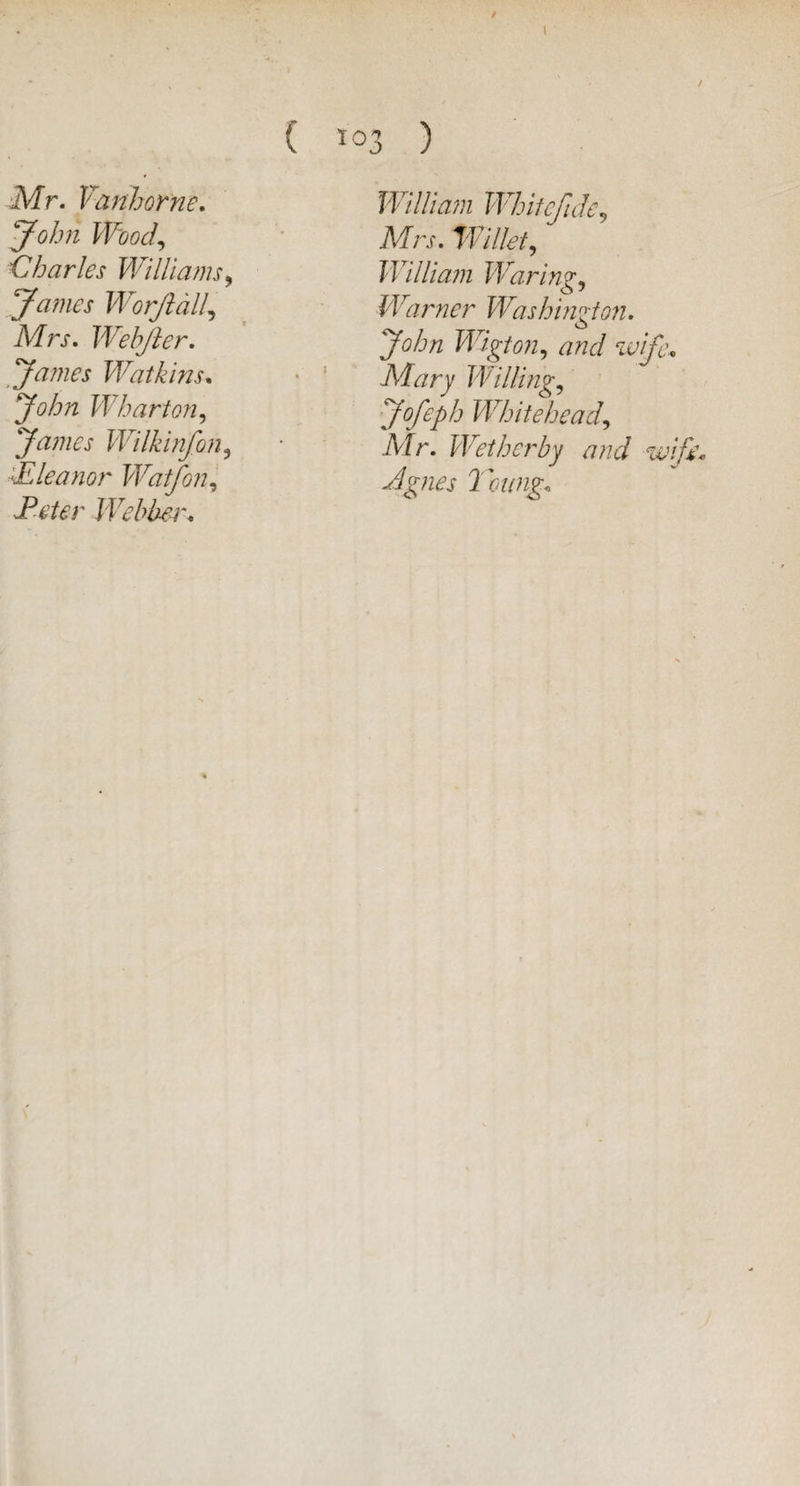 ( 103 )
Mr. Vanhorne.
John Wood,
Charles Williams,
James Worſtall,
Mrs. Webſter.
James Watkins.
John Wharton,
James Wilkinſon,
Eleanor Watſon,
Peter Webber.
William Whiteſide,
Mrs. Willet,
William Waring,
Warner Washington.
John Wigton, and wife.
Mary Willing,
Joſeph Whitehead,
Mr. Wetherby and wife.
Agnes Young.